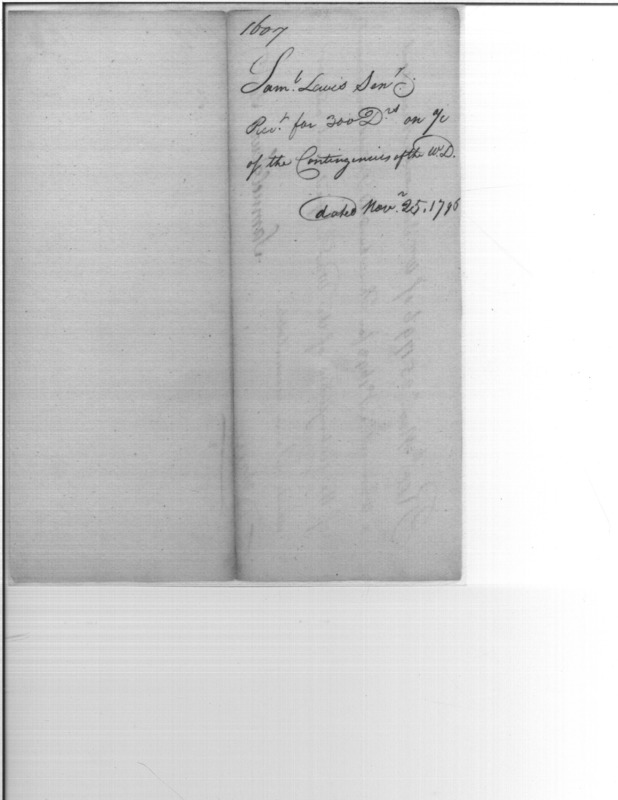 1607
Saml. Lewis Senr.
Rect. for 300 Drs on a/c
of the Contingencies of the W.D.
dated Novr. 25. 1796